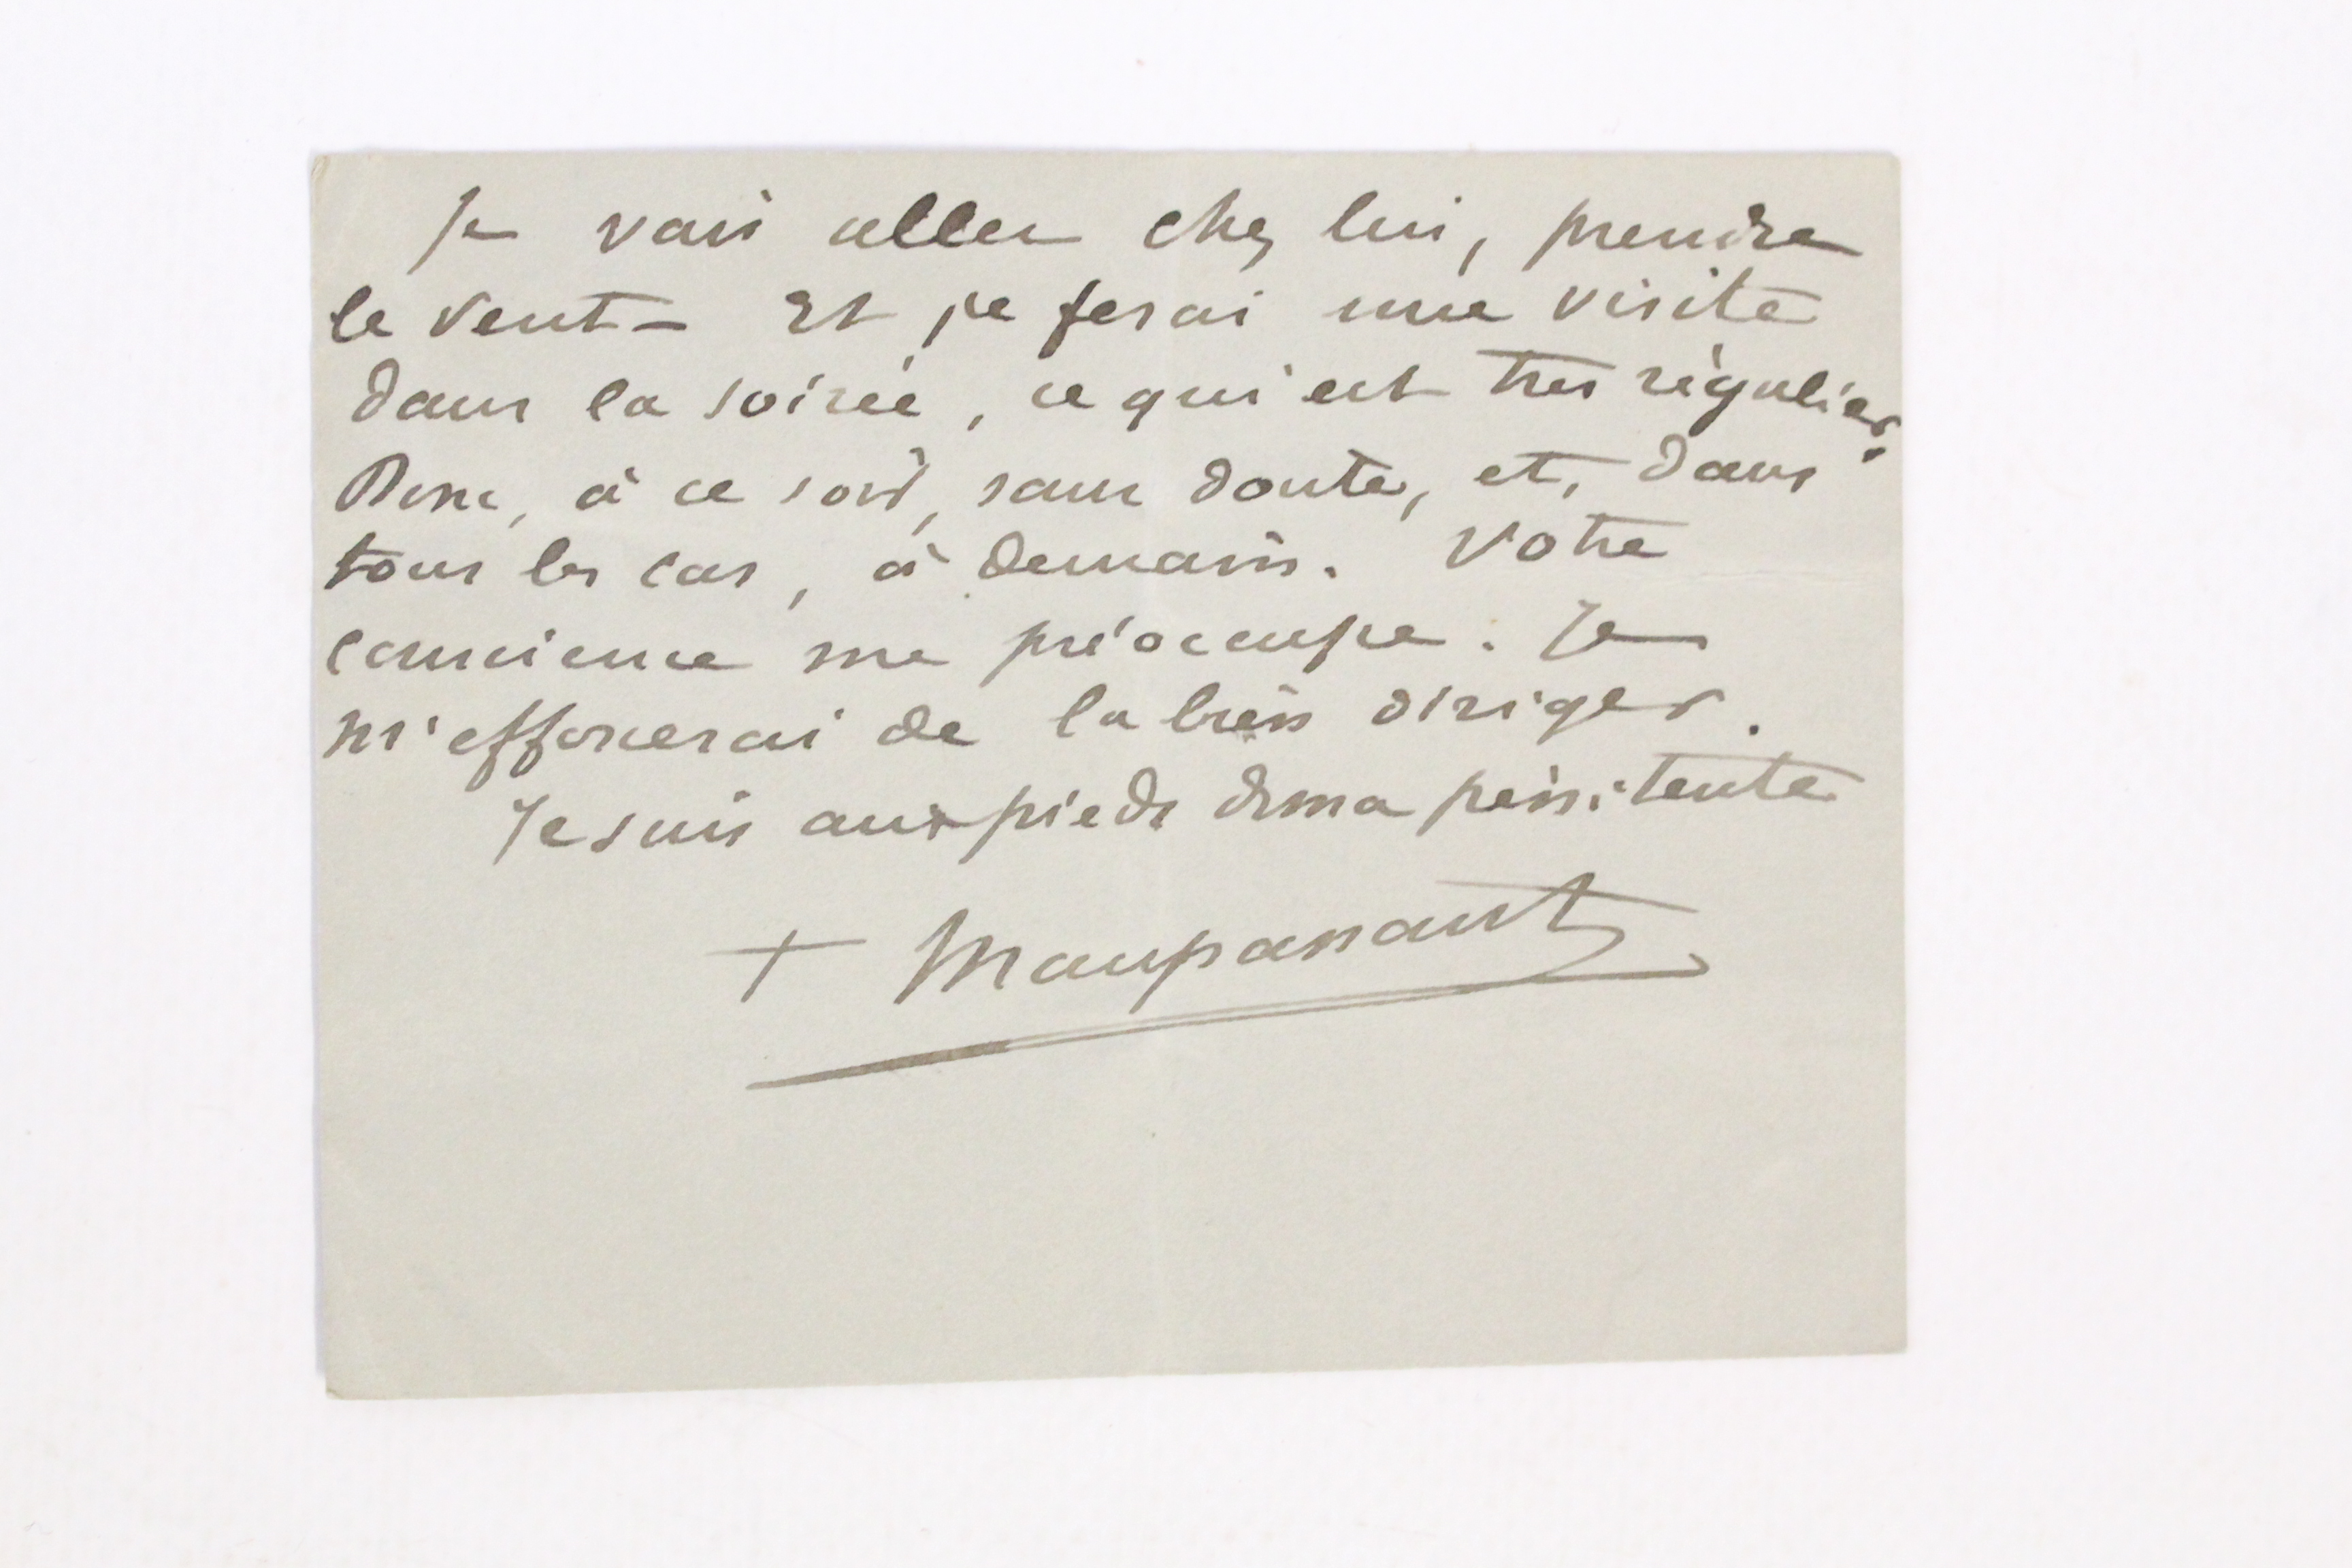 Je vais aller chez lui, prendre
le vent – Et je ferai une visite
dans la soirée, ce qui est très régulier.
Donc, à ce soir, sans doute, et, dans
tous les cas, à demain. Votre
conscience me préoccupe. Je
m'efforcerai de la bien diriger.
Je suis aux pieds de ma pénitente
+ Maupassant